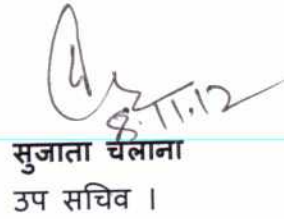 8.11.12
सुजाता चेलाना
उप सचिव ।